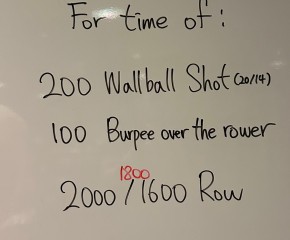 For time of :
200 Wallball Shot (20/14)
100 Burpee over the rower
1800
2000 / 1600 Row